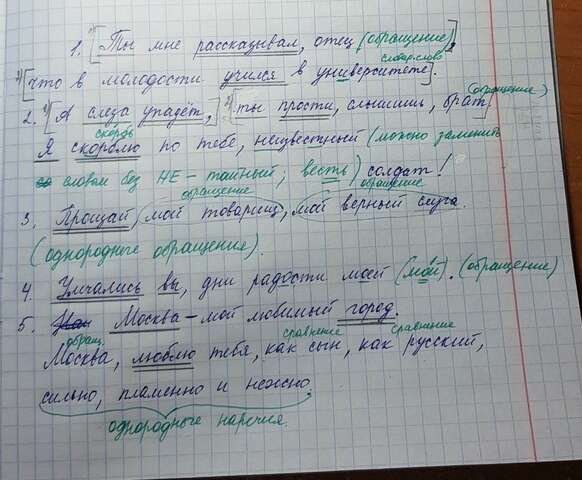 1. 1)[Ты мне рассказывал, отец (обращение)],
словар. слово
2)[что в молодости учился в университете].
2. 1)[А слеза упадёт,] 2)[ты прости, слышишь, брат] (обращение)
скорбь
Я скорблю по тебе, неизвестный (можно заменить
словом без НЕ - тайный; весть) солдат!
обращение обращение
3. Прощай, мой товарищ, мой верный слуга.
(однородные обращения).
4. Умчались вы, дни радости моей (мой). (обращение)
5. Москва - мой любимый город.
обращ. сравнение сравнение
Москва, люблю тебя, как сын, как русский,
сильно, пламенно и нежно.
однородные наречия.